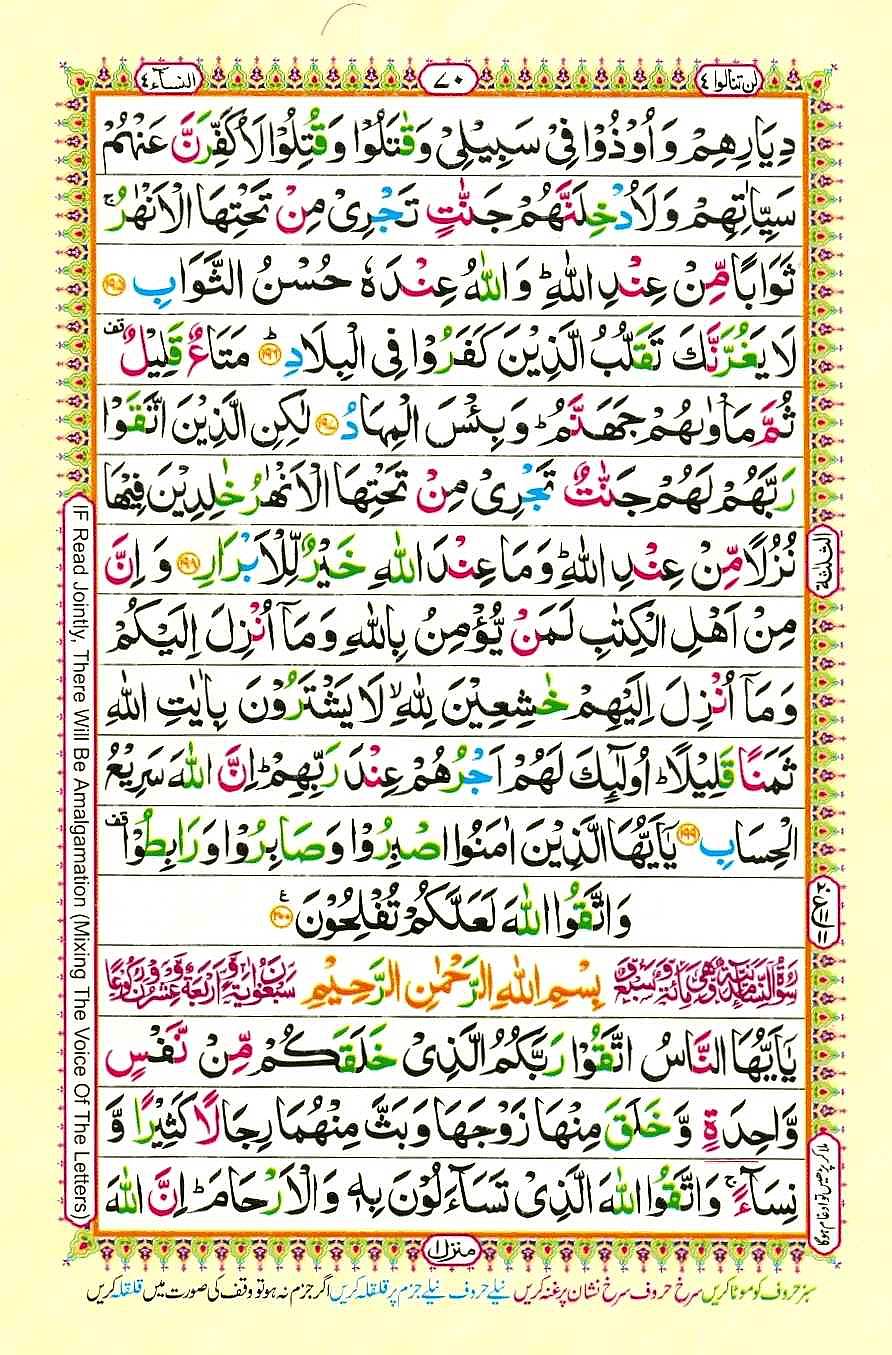 لن تنالوا ٤
٧٠
النسآء ٤
دِيَارِهِمْ وَاُوْذُوْا فِىْ سَبِيْلِىْ وَقٰتَلُوْا وَقُتِلُوْا لَاُكَفِّرَنَّ عَنْهُمْ
سَيِّاٰتِهِمْ وَلَاُدْخِلَنَّهُمْ جَنّٰتٍ تَجْرِىْ مِنْ تَحْتِهَا الْاَنْهٰرُ ۚ
ثَوَابًا مِّنْ عِنْدِ اللّٰهِ ؕ وَاللّٰهُ عِنْدَهٗ حُسْنُ الثَّوَابِ ﴿۱۹۵﴾
لَا يَغُرَّنَّكَ تَقَلُّبُ الَّذِيْنَ كَفَرُوْا فِى الْبِلَادِ ؕ ﴿۱۹۶﴾ مَتَاعٌ قَلِيْلٌ قف
ثُمَّ مَاْوٰىهُمْ جَهَنَّمُ ؕ وَبِئْسَ الْمِهَادُ ﴿۱۹۷﴾ لٰكِنِ الَّذِيْنَ اتَّقَوْا
رَبَّهُمْ لَهُمْ جَنّٰتٌ تَجْرِىْ مِنْ تَحْتِهَا الْاَنْهٰرُ خٰلِدِيْنَ فِيْهَا
نُزُلًا مِّنْ عِنْدِ اللّٰهِ ؕ وَمَا عِنْدَ اللّٰهِ خَيْرٌ لِّلْاَبْرَارِ ﴿۱۹۸﴾ وَاِنَّ
الثلثة
مِنْ اَهْلِ الْكِتٰبِ لَمَنْ يُّؤْمِنُ بِاللّٰهِ وَمَاۤ اُنْزِلَ اِلَيْكُمْ
وَمَاۤ اُنْزِلَ اِلَيْهِمْ خٰشِعِيْنَ لِلّٰهِ ۙ لَا يَشْتَرُوْنَ بِاٰيٰتِ اللّٰهِ
ثَمَنًا قَلِيْلًا ؕ اُولٰٓئِكَ لَهُمْ اَجْرُهُمْ عِنْدَ رَبِّهِمْ ؕ اِنَّ اللّٰهَ سَرِيْعُ
الْحِسَابِ ﴿۱۹۹﴾ يٰۤاَيُّهَا الَّذِيْنَ اٰمَنُوا اصْبِرُوْا وَصَابِرُوْا وَرَابِطُوْا قف
وَاتَّقُوا اللّٰهَ لَعَلَّكُمْ تُفْلِحُوْنَ ﴿۲۰۰﴾ ع
بِسْمِ اللّٰهِ الرَّحْمٰنِ الرَّحِيْمِ
يٰۤاَيُّهَا النَّاسُ اتَّقُوْا رَبَّكُمُ الَّذِىْ خَلَقَكُمْ مِّنْ نَّفْسٍ
وَّاحِدَةٍ وَّخَلَقَ مِنْهَا زَوْجَهَا وَبَثَّ مِنْهُمَا رِجَالًا كَثِيْرًا وَّ
نِسَآءً ۚ وَاتَّقُوا اللّٰهَ الَّذِىْ تَسَآءَلُوْنَ بِهٖ وَالْاَرْحَامَ ؕ اِنَّ اللّٰهَ
ملا کر پڑھیں تو ادغام ہوگا
IF Read Jointly, There Will Be Amalgamation (Mixing The Voice Of The Letters)
منزل ۱
سبز حروف کو موٹا کریں سرخ حروف سرخ نشان پر غنہ کریں نیلے حروف نیلے جزم پر قلقلہ کریں اگر جزم نہ ہو تو وقف کی صورت میں قلقلہ کریں